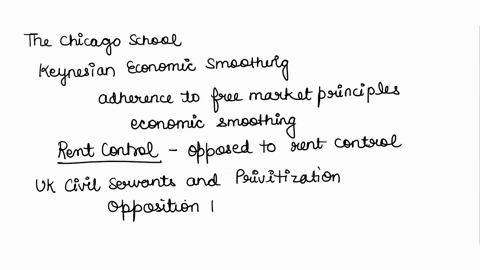 The Chicago School
Keynesian Economic Smoothing
adherence to free market principles
economic smoothing
Rent Control - opposed to rent control
UK Civil Servants and Privitization
Opposition |